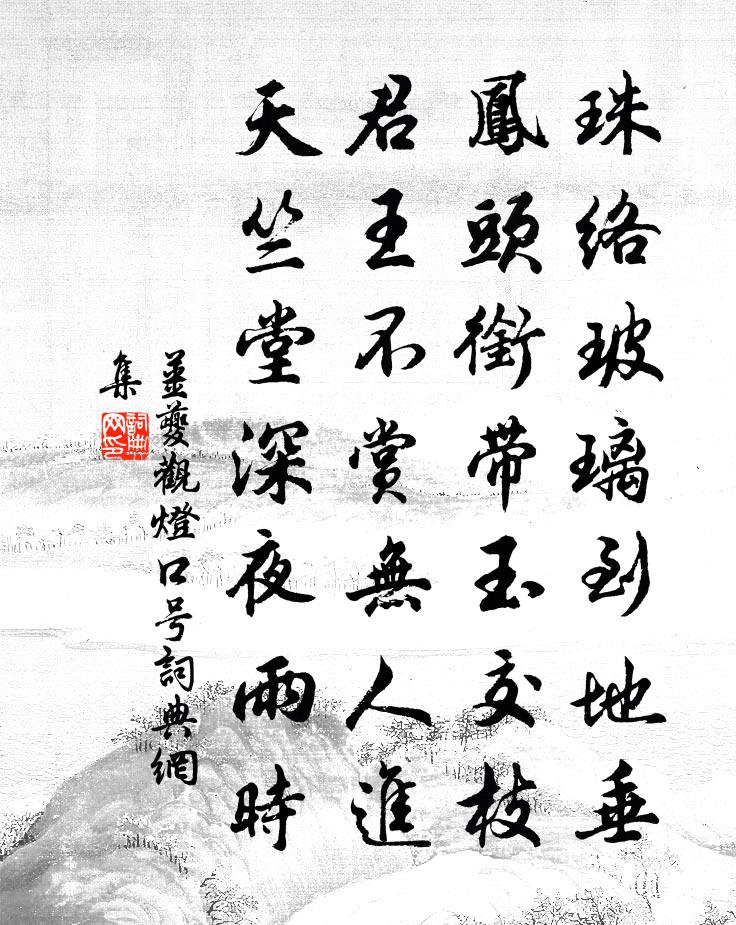 珠絡玻璃到地垂
鳳頭銜帶玉交枝
君王不賞無人進
天竺堂深夜雨時
姜夔觀燈口号詞典網
集
詞典网印